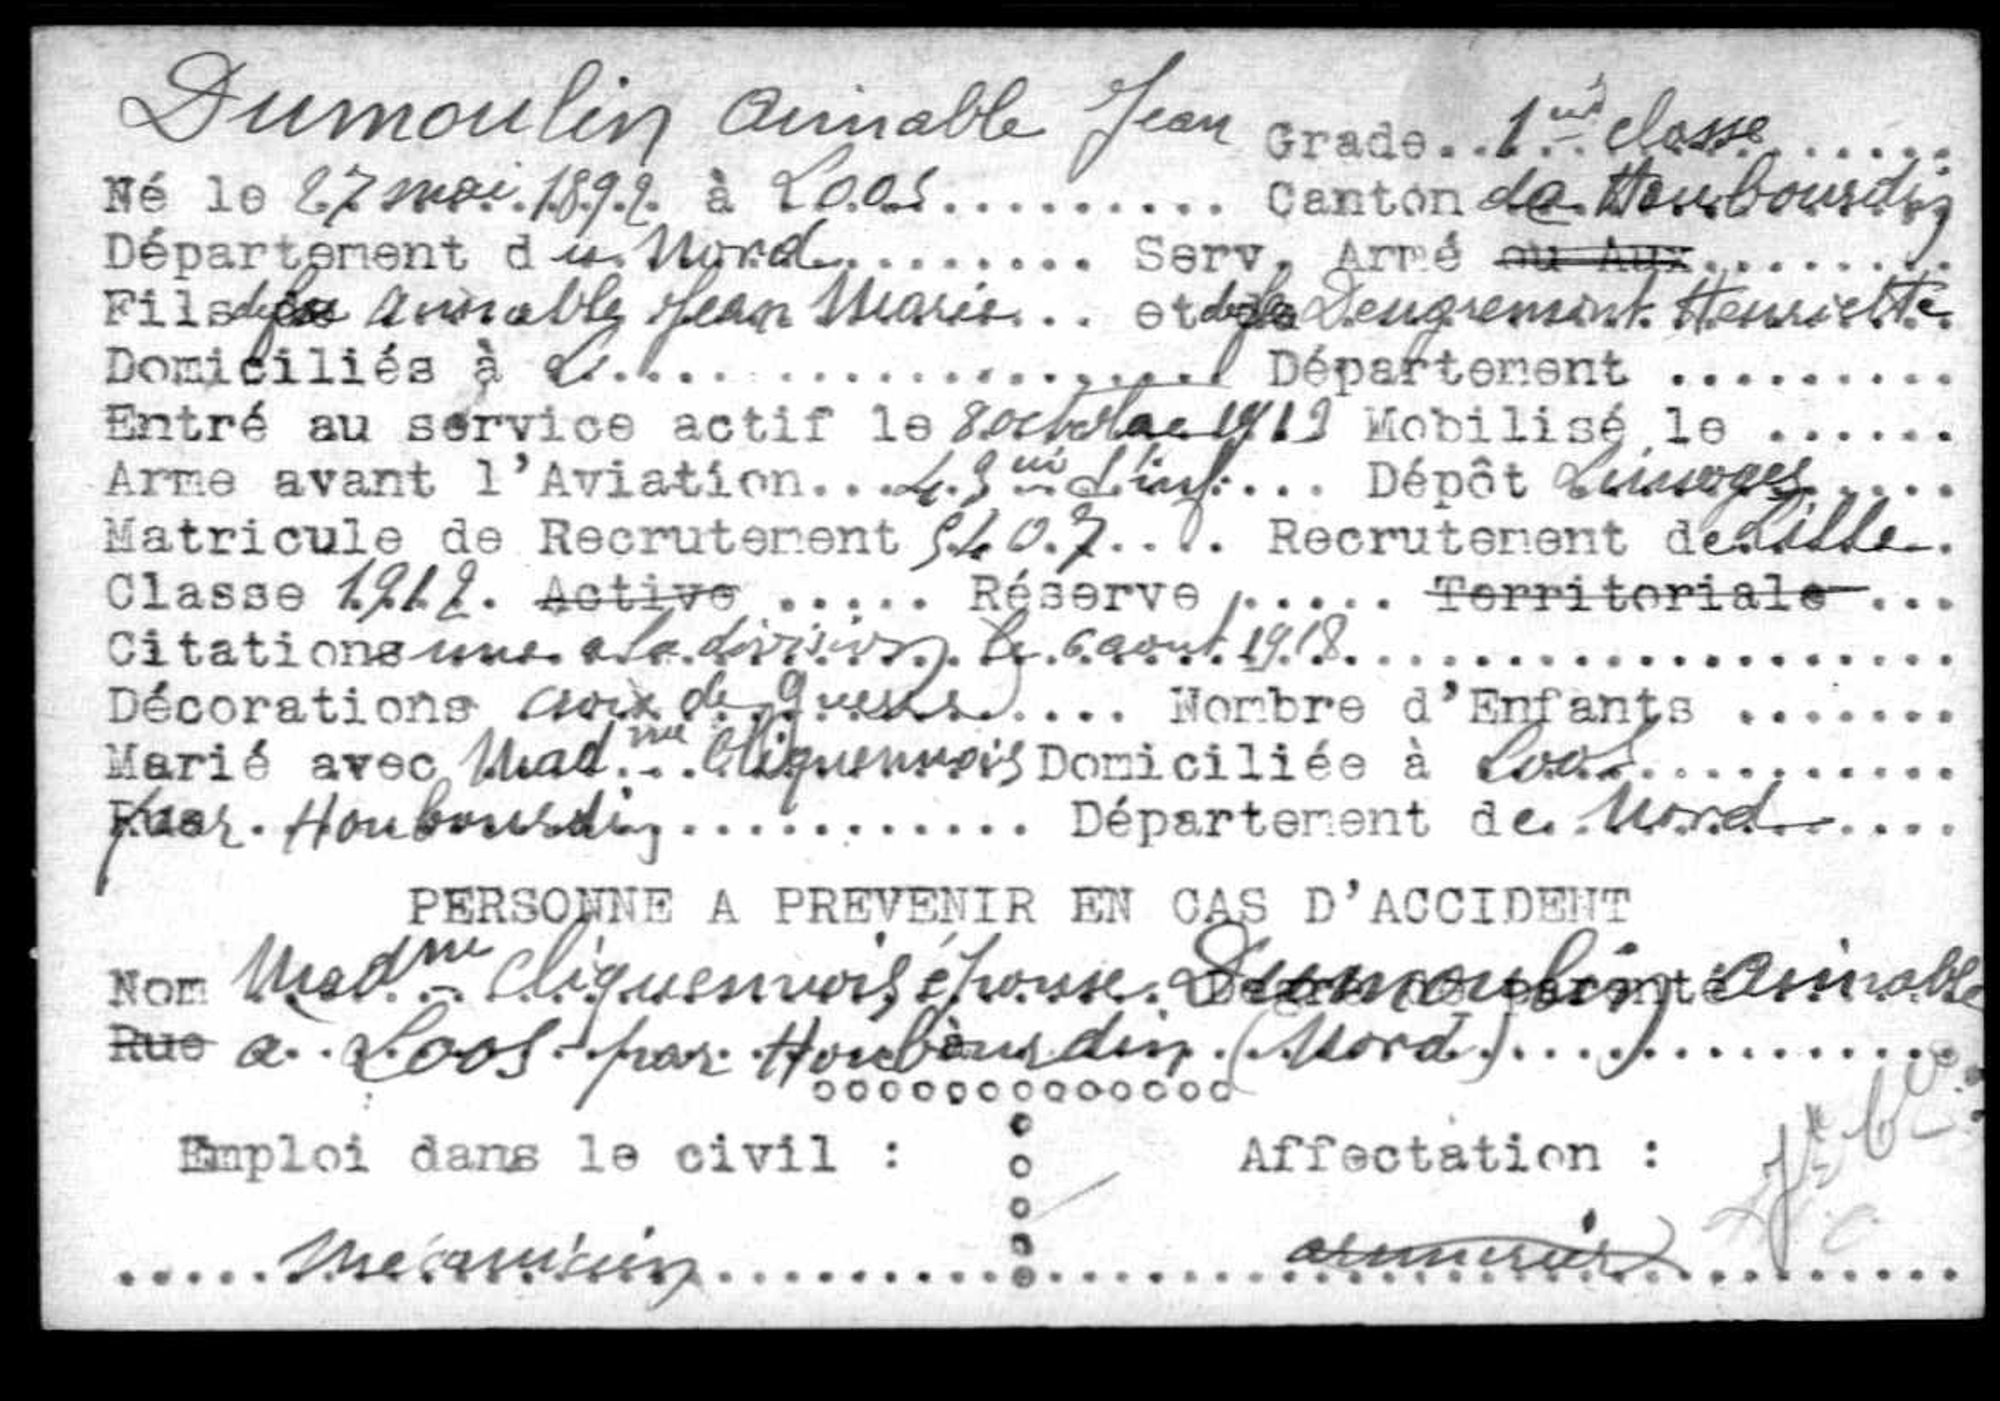 Dumoulin Aimable Jean Grade 1ère classe
Né le 27 mai 1892 à Loos Canton de Houbourdin
Département du Nord Serv. Armé ou Aux
Fils de feu Aimable Jean Marie et de Deugremont Henriette
Domiciliés à Département
Entré au service actif le 8 octobre 1913 Mobilisé le
Arme avant l'Aviation 43 d'inf. Dépôt Limoges
Matricule de Recrutement Recrutement de Lille
Classe 1912. Active Réserve Territoriale
Citations une a la division le 6 aout 1918
Décorations croix de guerre Nombre d'Enfants
Marié avec Madme Cliquennois Domiciliée à Loos
Rue par Houbourdin Département de Nord
PERSONNE A PREVENIR EN CAS D'ACCIDENT
Nom Madme Cliquennois épouse Dumoulin Aimable
Rue a Loos par Houbourdin (Nord)
Emploi dans le civil : Affectation :
Mécanicien armurier